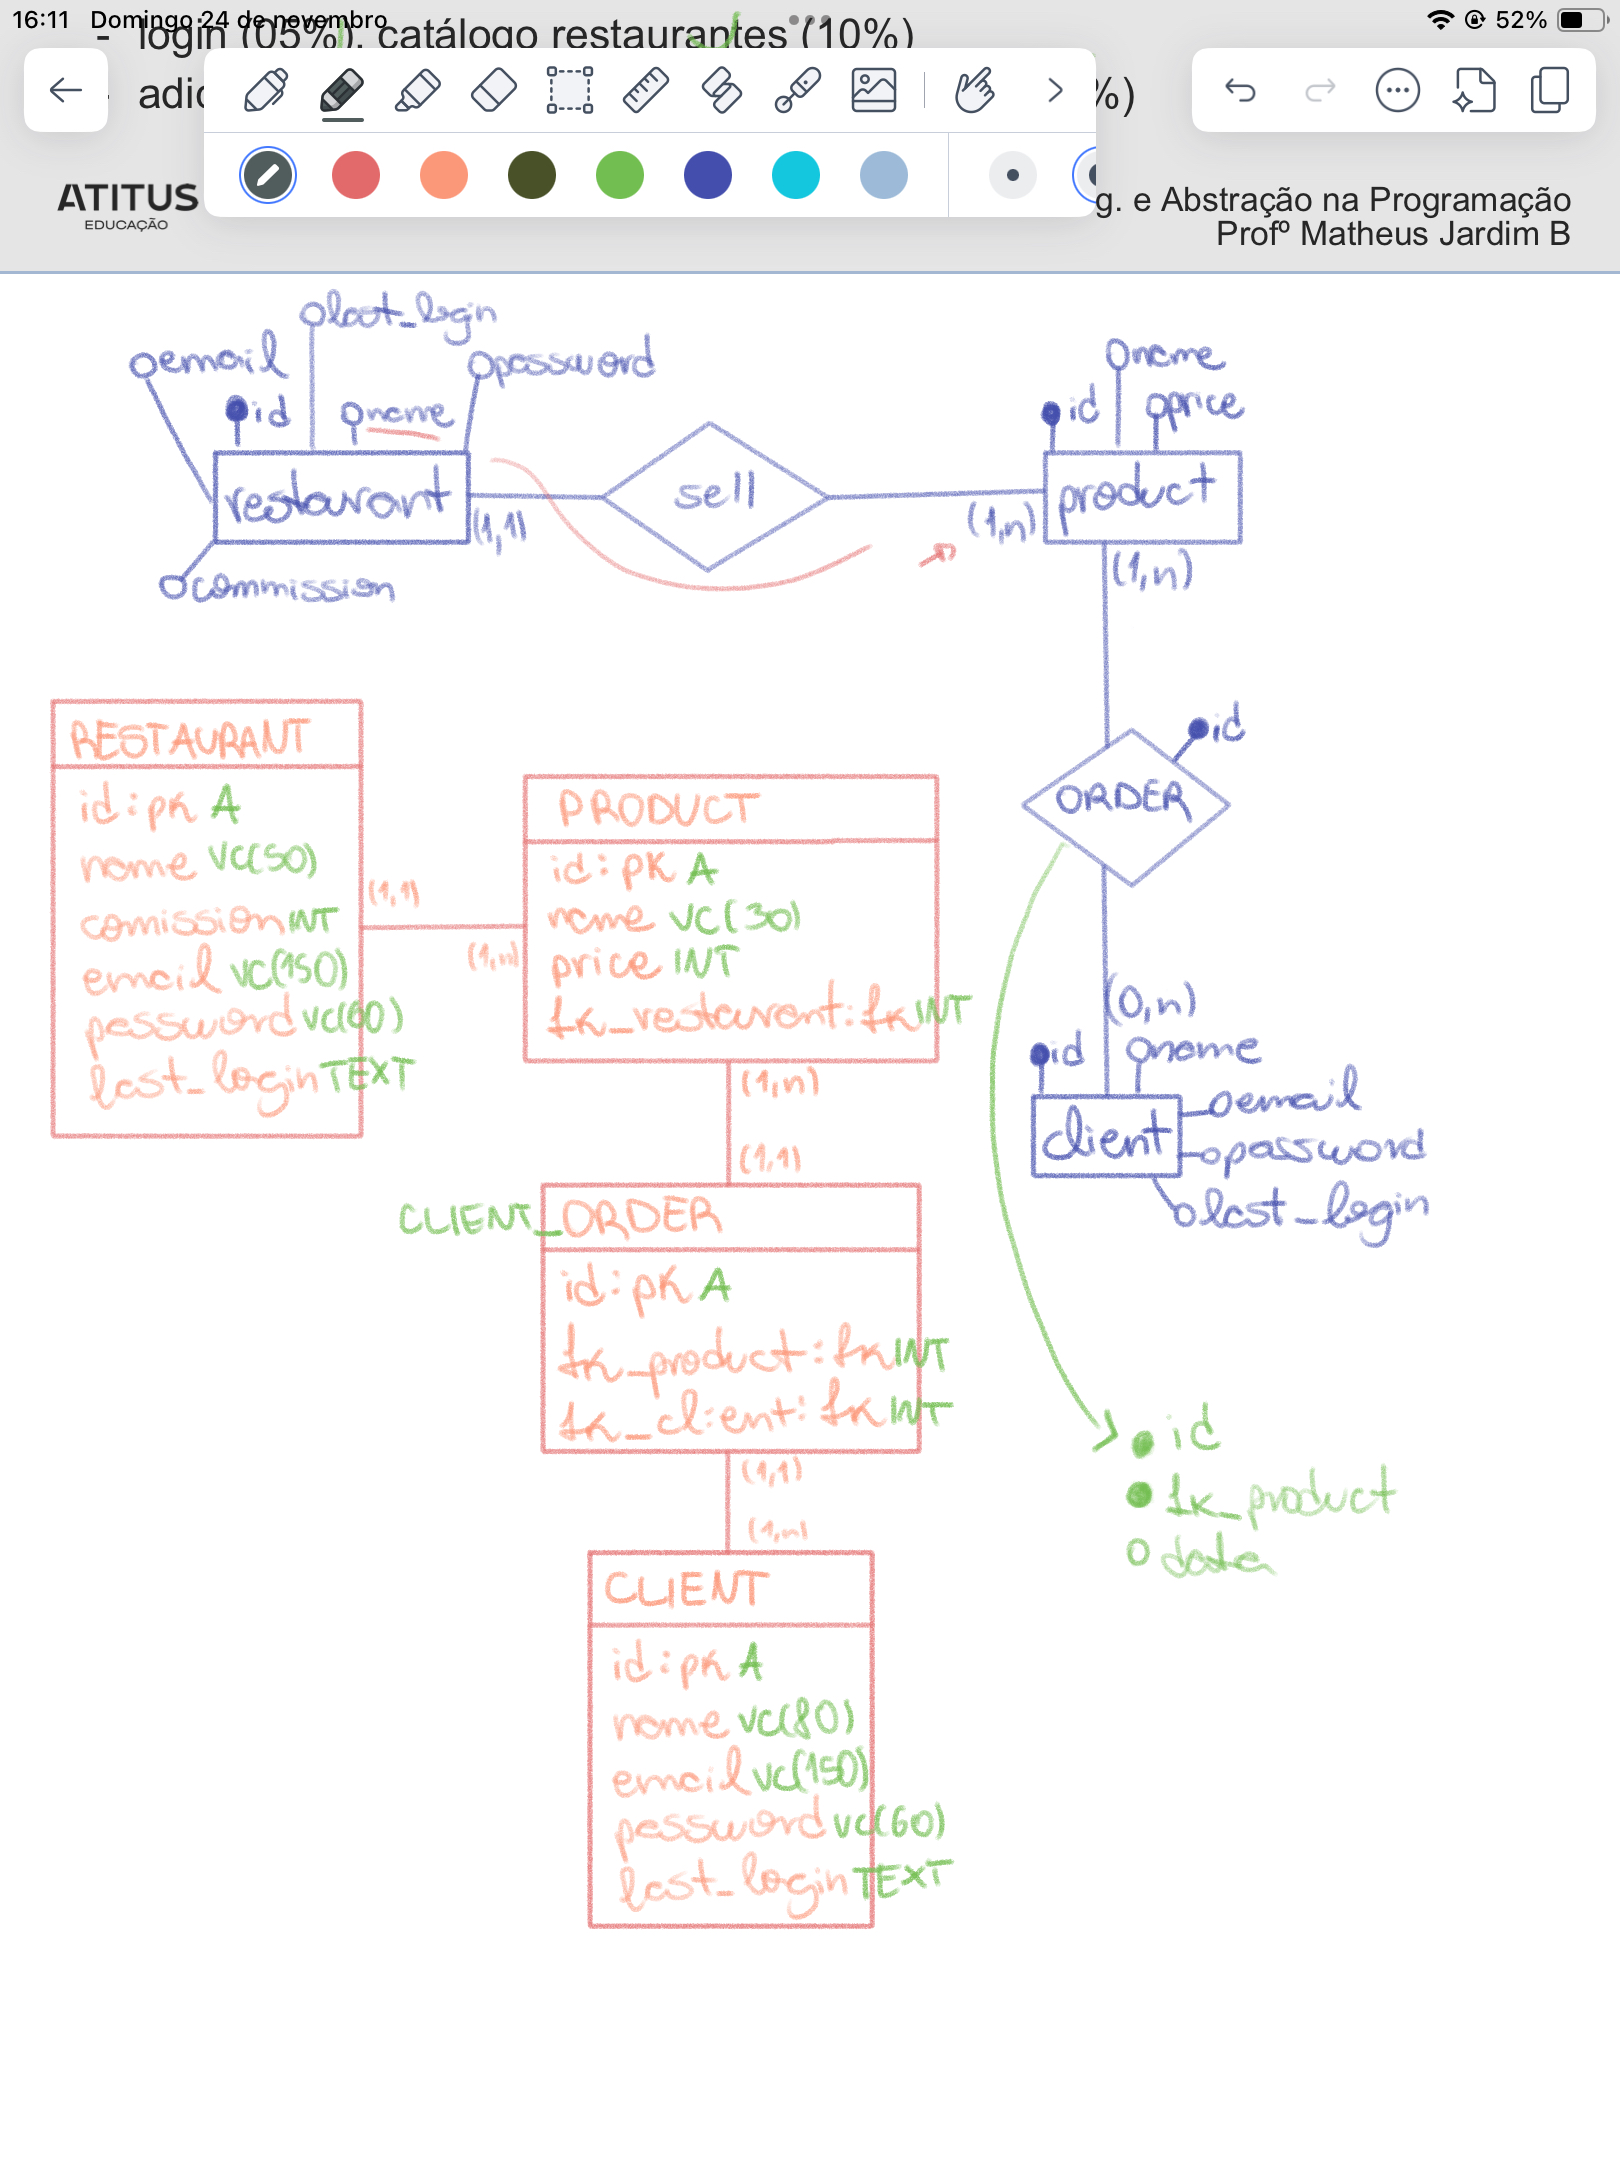 16:11 Domingo 24 de novembro 52%
- login (05%), catálogo restaurantes (10%)
- adic %)
ATITUS
EDUCAÇÃO
g. e Abstração na Programação
Profº Matheus Jardim B
last_login
email
password
id
name
restaurant
(1,1)
commission
sell
name
id
price
(1,n)
product
(1,n)
id
ORDER
(0,n)
id
name
client
email
password
last_login
id
fk_product
data
RESTAURANT
id:pk A
nome VC(50)
comission INT
email VC(150)
password VC(60)
last_login TEXT
(1,1)
(1,n)
PRODUCT
id:pk A
name VC(30)
price INT
fk_restaurant:fk INT
(1,n)
(1,1)
CLIENT_ORDER
id:pk A
fk_product:fk INT
fk_client:fk INT
(1,1)
(1,n)
CLIENT
id:pk A
nome VC(80)
email VC(150)
password VC(60)
last_login TEXT